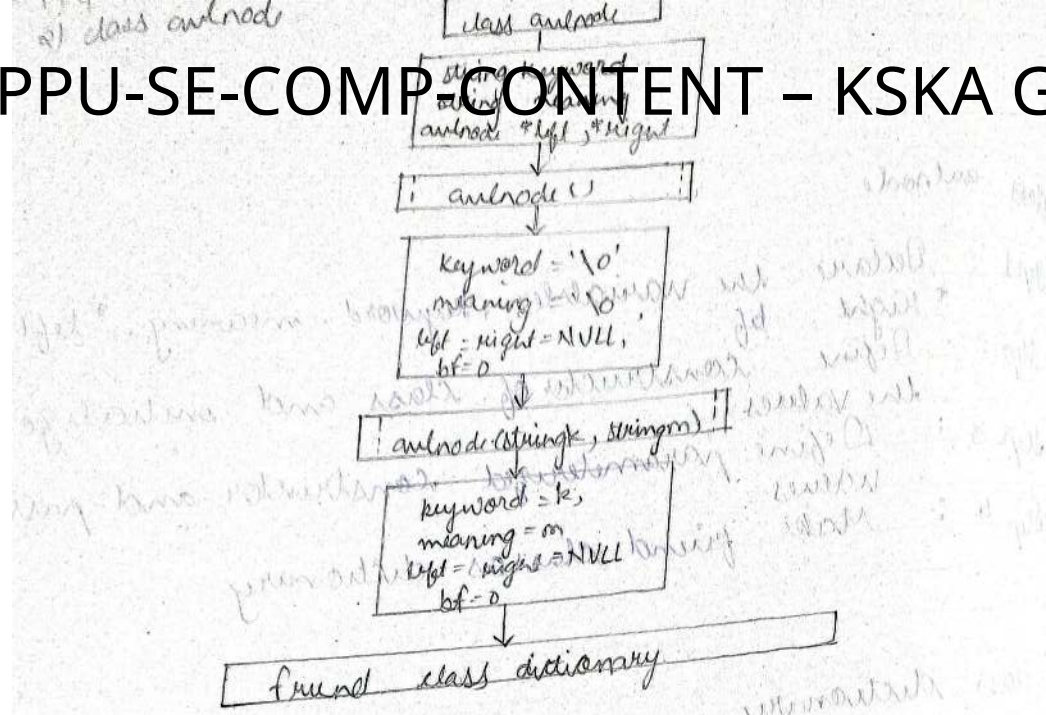 2) class avlnode
class avlnode
string keyword
PPU-SE-COMP-CONTENT – KSKA G
string meaning
avlnode *left, *right
avlnode ()
keyword = '\0'
meaning = '\0'
left = right = NULL,
bf = 0
avlnode(string k, string m)
keyword = k,
meaning = m
left = right = NULL
bf = 0
friend class dictionary